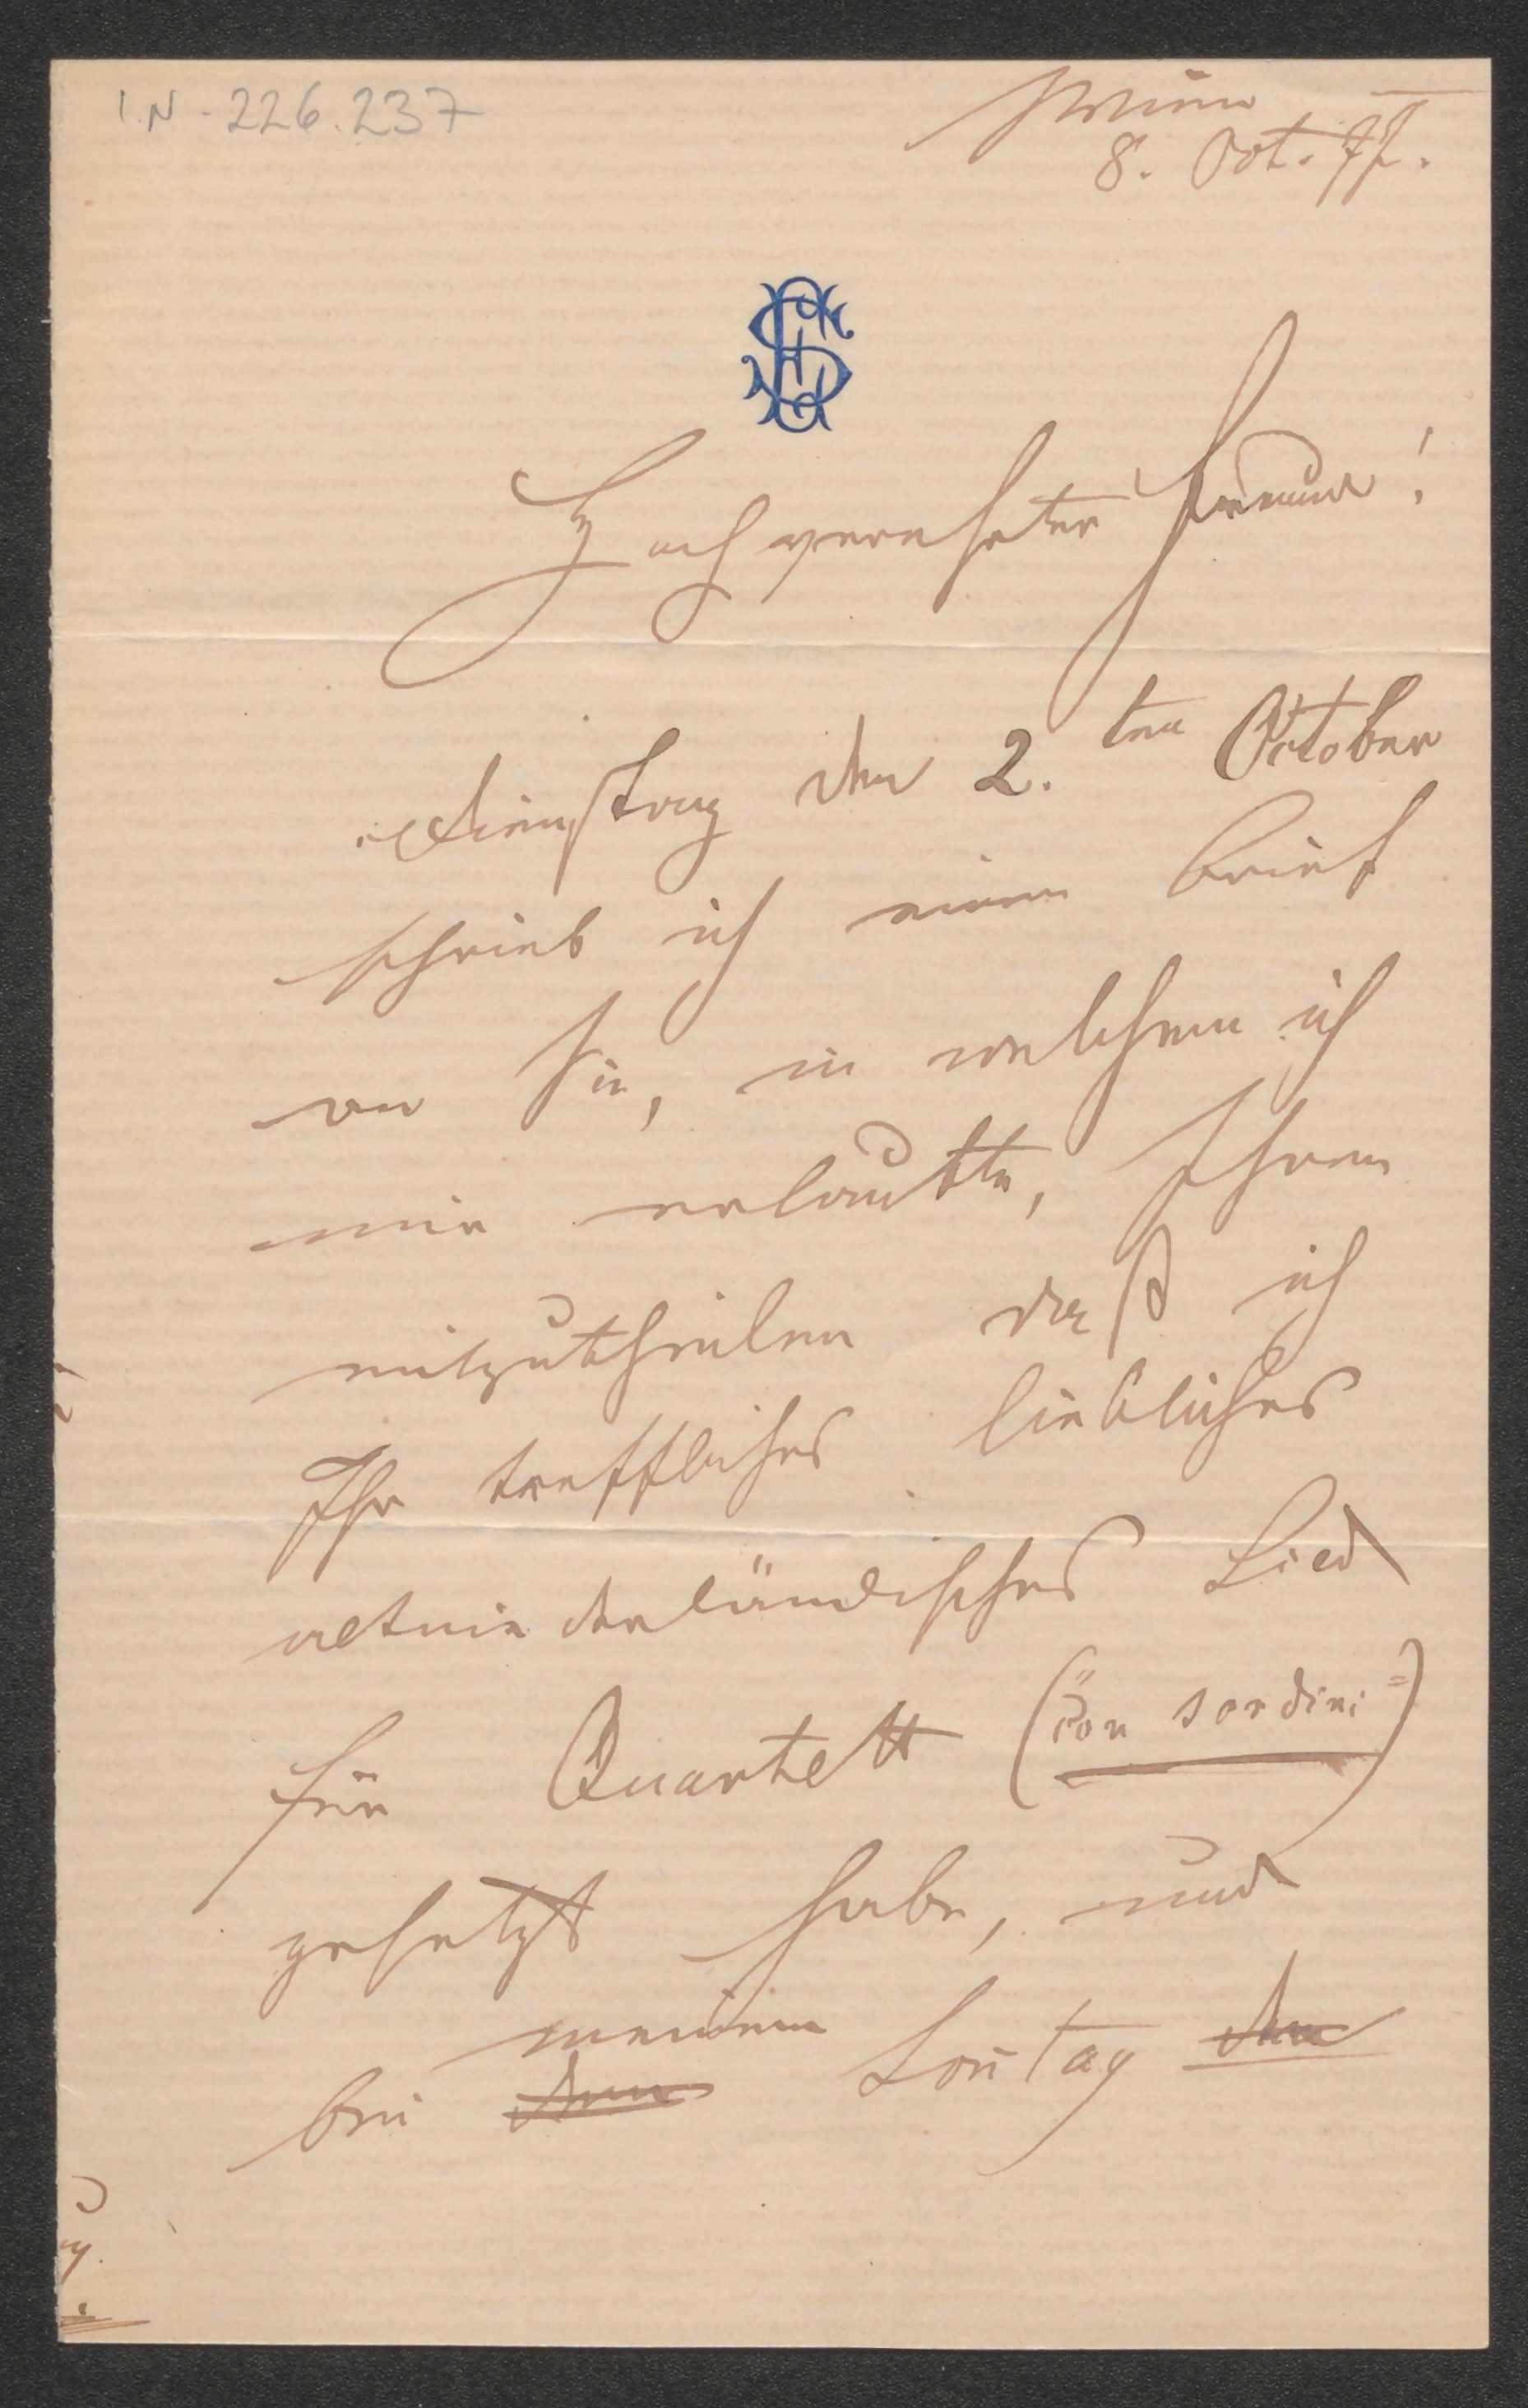 I.N. 226.237
Wien
8. Oct. 77.
HS
Hochverehrter Freund!
Dienstag den 2. ten October
schrieb ich einen Brief
an Sie, in welchem ich
mir erlaubte, Ihnen
mitzutheilen daß ich
Ihr treffliches liebliches
altniederländisches Lied
für Quartett ("con sordini")
gesetzt habe, und
meinem
bei dem Sontag den